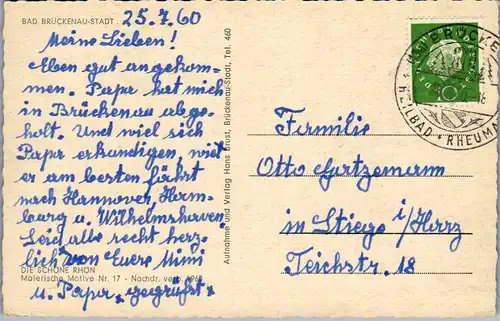 BAD BRÜCKENAU-STADT
25.7.60
Meine Lieben!
Eben gut angekom-
men. Papa hat mich
in Brückenau abge-
holt. Und will sich
Papa erkundigen, wie
er am besten fährt
nach Hannover, Ham-
burg u. Wilhelmshaven.
Seid alle recht herz-
lich von Eurer Mimi
u. Papa gegrüßt
DIE SCHÖNE RHÖN
Malerische Motive Nr. 17 - Nachdr. verb. 1960
Aufnahme und Verlag Hans Brust, Brückenau-Stadt, Tel. 460
BAD BRÜCKE
HEILBAD • RHEUMA
10
Familie
Otto
in Stiege i/Harz
Teichstr. 18